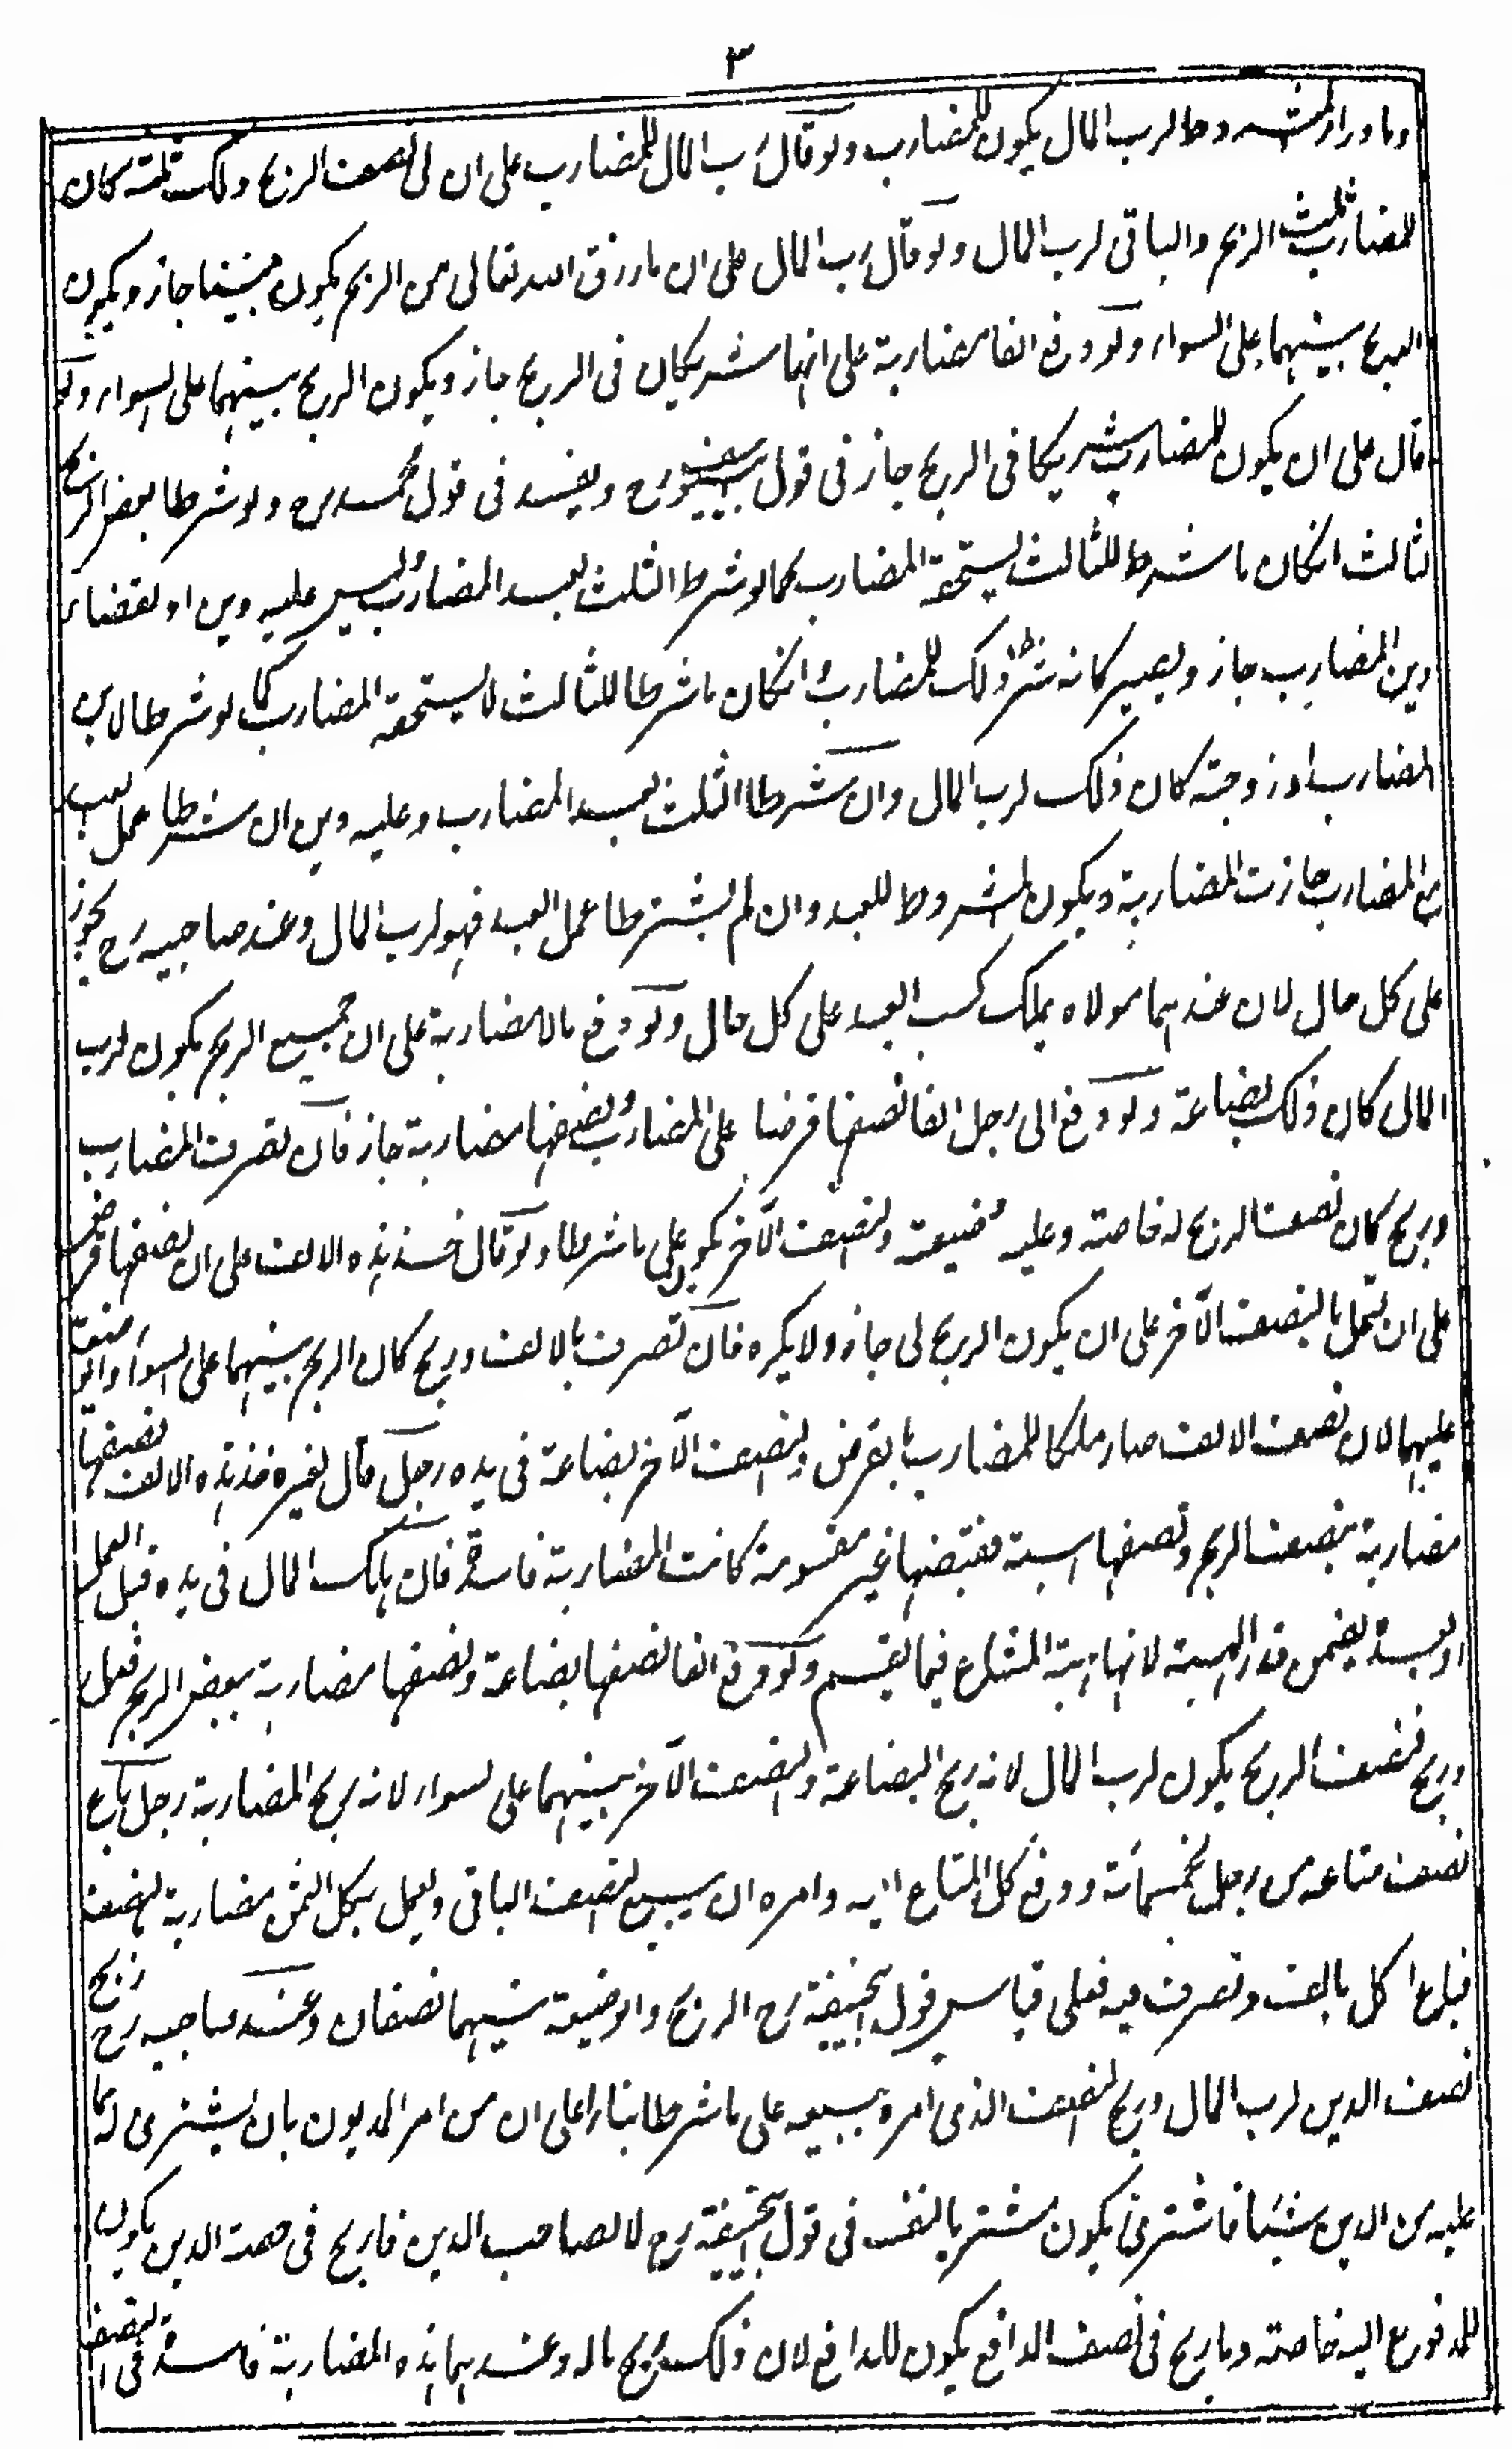 ٣
وما وراء المشروط لرب المال يكون للمضارب ولو قال رب المال للمضارب على ان لى نصف الربح ولك ثلثه كان
للمضارب ثلث الربح والباقى لرب المال ولو قال رب المال على ان ما رزق الله تعالى من الربح يكون بيننا جاز ويكون
الربح بينهما على السواء ولو دفع الفا مضاربة على انهما شريكان فى الربح جاز ويكون الربح بينهما على السواء ولو
قال على ان يكون للمضارب شريكا فى الربح جاز فى قول ابى يوسف رح ويفسد فى قول محمد رح ولو شرطا بعض الربح
لثالث انكان ما شرط للثالث يستحقه المضارب كما لو شرط الثلث لعبد المضارب وليس عليه دين او لقضاء
دين المضارب جاز ويصير كانه شرط ذلك للمضارب وانكان ما شرطا للثالث لا يستحقه المضارب كما لو شرطا لابن
المضارب او زوجته كان ذلك لرب المال وان شرطا الثلث لعبد المضارب وعليه دين ان شرطا عمل العبد
مع المضارب جازت المضاربة ويكون المشروط للعبد وان لم يشترطا عمل العبد فهو لرب المال وعند صاحبيه رح يجوز
على كل حال لان عندهما مولاه يملك كسب العبد على كل حال ولو دفع مالا مضاربة على ان جميع الربح يكون لرب
المال كان ذلك بضاعة ولو دفع الى رجل الفا نصفها قرضا على المضارب ونصفها مضاربة جاز فان تصرف المضارب
وربح كان نصف الربح له خاصة وعليه وضيعته والنصف الآخر يكون على ما شرطا ولو قال خذ هذه الالف على ان نصفها قرض
على ان تعمل بالنصف الآخر على ان يكون الربح لى جاز ولا يكره فان تصرف بالالف وربح كان الربح بينهما على السواء والوضيعة
عليهما لان نصف الالف صار ملكا للمضارب بالقرض والنصف الآخر بضاعة فى يده رجل قال لغيره خذ هذه الالف نصفها
مضاربة بنصف الربح ونصفها هبة فقبضها غير مقسومة كانت المضاربة فاسدة فان هلك المال فى يده قبل العمل
او بعده يضمن قدر الهبة لانها هبة المشاع فيما يقسم ولو دفع الفا نصفها بضاعة ونصفها مضاربة ببعض الربح فعمل
وربح فنصف الربح يكون لرب المال لانه ربح البضاعة والنصف الآخر بينهما على السواء لانه ربح المضاربة رجل باع
نصف متاعه من رجل بخمسمائة ودفع كل المتاع اليه وامره ان يبيع النصف الباقى ويعمل بكل الثمن مضاربة بالنصف
فباع الكل بالف وتصرف فيه فعلى قياس قول ابى حنيفة رح الربح والوضيعة بينهما نصفان وعند صاحبيه رح ربح
نصف الدين لرب المال وربح النصف الذى امره ببيعه على ما شرطا بناء على ان من امر المديون بان يشترى له بما
عليه من الدين شيئا فاشترى يكون مشتريا لنفسه فى قول ابى حنيفة رح لا لصاحب الدين فما ربح فى حصة الدين يكون
للمدفوع اليه خاصة وما ربح فى نصف الدافع يكون للدافع لان ذلك ربح ماله وعندهما هذه المضاربة فاسدة فى النصف